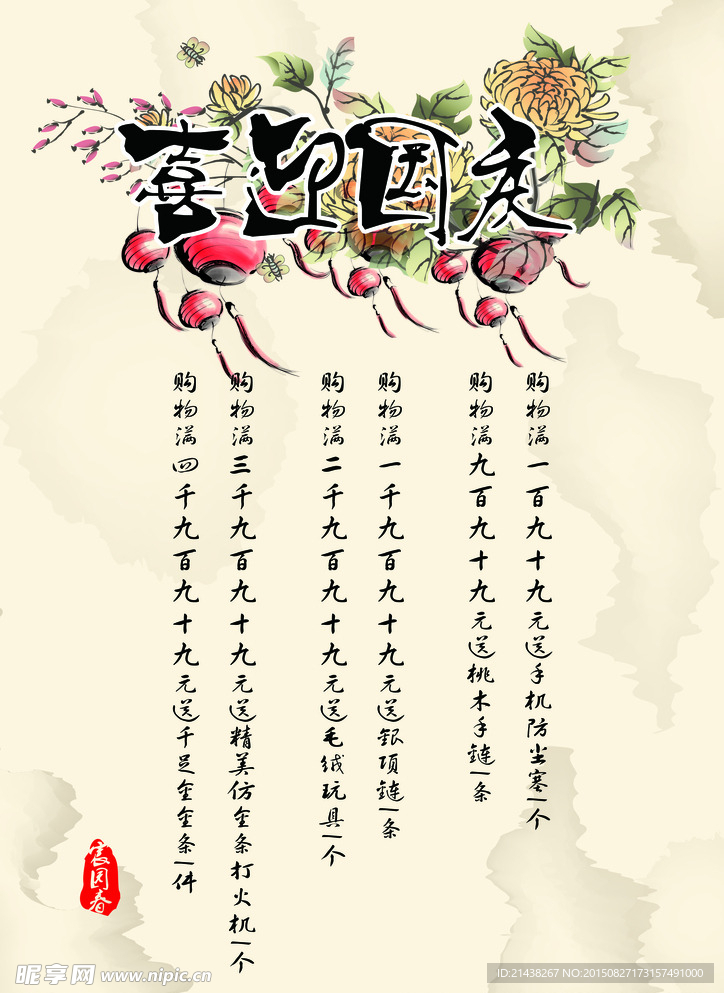 喜迎国庆
购物满一百九十九元送手机防尘塞一个
购物满九百九十九元送桃木手链一条
购物满一千九百九十九元送银项链一条
购物满二千九百九十九元送毛绒玩具一个
购物满三千九百九十九元送精美仿金条打火机一个
购物满四千九百九十九元送千足金金条一件
昵享网 www.nipic.cn
ID:21438267 NO:20150827173157491000